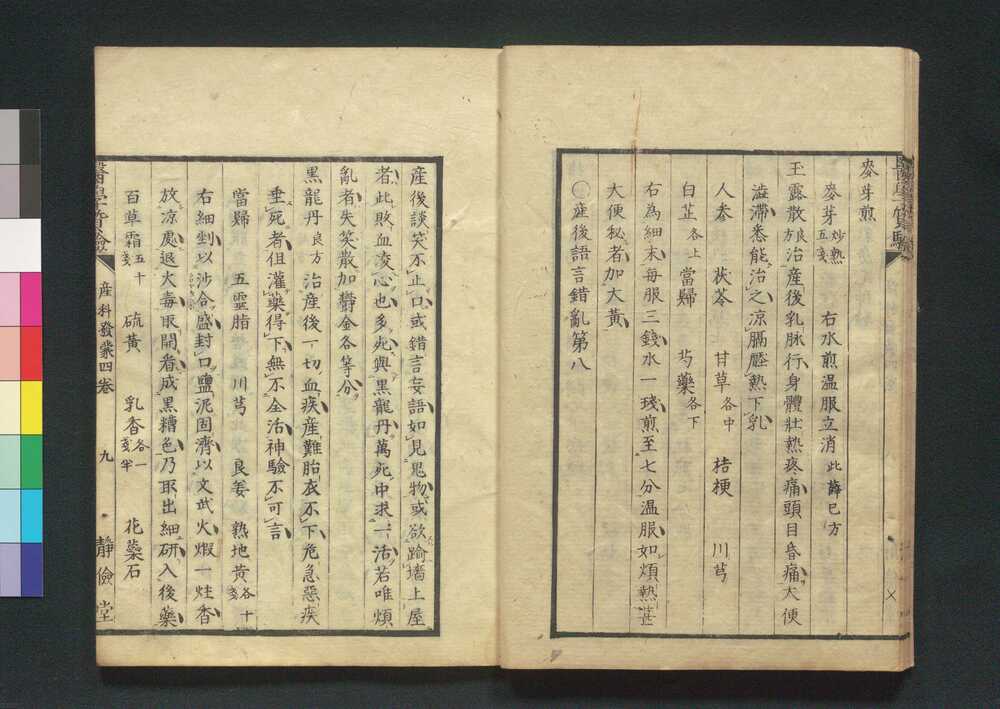 麥芽煎
麥芽炒熟五戔 右水煎温服立消此薛己方
玉露散良方治産後乳脉行身體壯熱疼痛頭目昏痛大便
澁滯悉能治之凉膈壓熱下乳
人参 茯苓 甘草各中 桔梗 川芎
白芷各上 當歸 芍藥各下
右為細末每服三錢水一琖煎至七分温服如煩熱甚
大便秘者加大黃
〇産後語言錯亂第八
産後談笑不止口或錯言妄語如見鬼物或欲踰墻上屋
者此敗血凌心也多死與黒龍丹萬死中求一活若唯煩
亂者失笑散加鬱金各等分
黒龍丹良方治産後一切血疾産難胎衣不下危急惡疾
垂死者但灌藥得下無不全活神驗不可言
當歸 五靈脂 川芎 良姜 熟地黃各十戔
右細剉以沙合盛封口鹽泥固濟以文武火煅一炷香
放凉處退火毒取開看成黒糟色乃取出細研入後藥
百草霜五十戔 硫黃 乳香各一戔半 花蘂石
産科發蒙四卷 九 靜儉堂